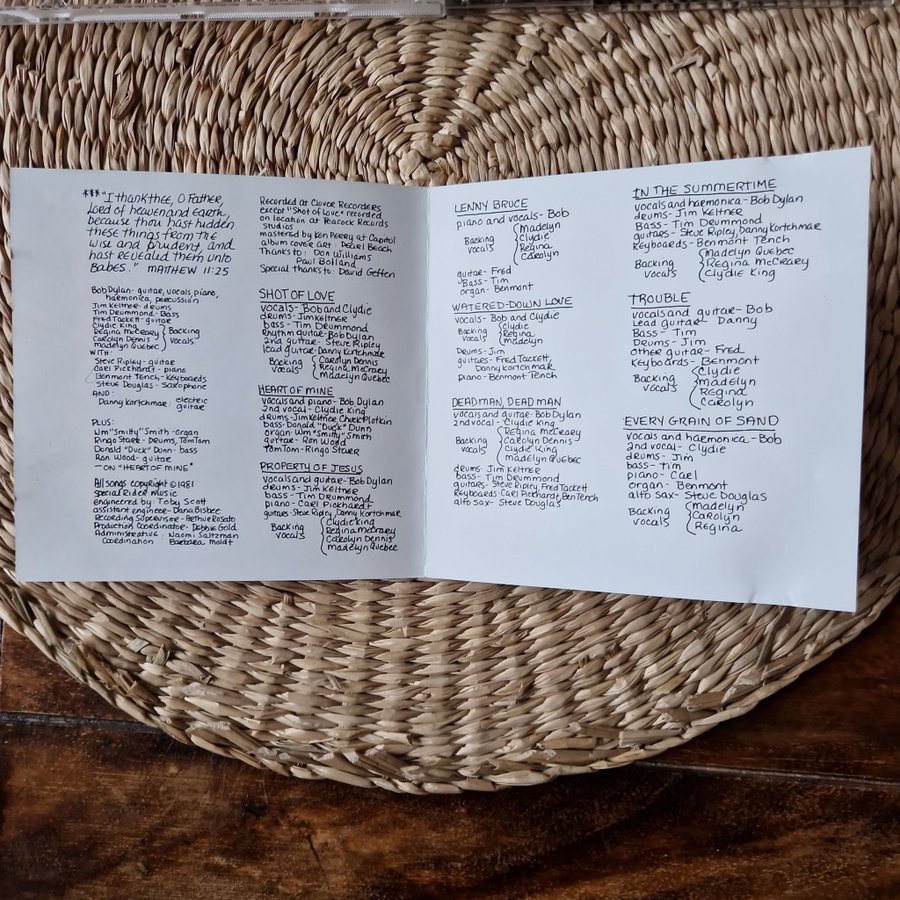 *** "I thank thee, O Father,
Lord of heaven and earth,
because thou hast hidden
these things from the
wise and prudent, and
hast revealed them unto
Babes." MATTHEW 11:25
Bob Dylan - guitar, vocals, piano,
harmonica, percussion
Jim Keltner - drums
Tim Drummond - Bass
Fred Tackett - guitar
Clydie King
Regina McCrary
Carolyn Dennis
Madelyn Quebec
Backing
vocals
WITH:
Steve Ripley - guitar
Carl Pickhardt - piano
Benmont Tench - Keyboards
Steve Douglas - Saxophone
AND:
Danny Kortchmar - electric
guitar
PLUS:
Wm "Smitty" Smith - organ
Ringo Starr - Drums, TomTom
Donald "Duck" Dunn - bass
Ron Wood - guitar
— ON "HEART OF MINE"
All songs copyright © 1981
Special Rider Music
engineered by Toby Scott
assistant engineer - Dana Bisbee
Recording Supervisor - Arthur Rosato
Production Coordinator - Debbie Gold
Administrative Coordination: Naomi Saltzman
Barbara Moldt
Recorded at Clover Recorders
except "Shot of Love" recorded
on location at Peacock Records
Studios
mastered by Ken Perry at Capitol
album cover art - Pearl Beach
Thanks to: Don Williams
Paul Bolland
Special thanks to: David Geffen
SHOT OF LOVE
vocals - Bob and Clydie
drums - Jim Keltner
bass - Tim Drummond
Rhythm guitar - Bob Dylan
2nd guitar - Steve Ripley
lead guitar - Danny Kortchmar
Backing
vocals
Carolyn Dennis
Regina McCrary
Madelyn Quebec
HEART OF MINE
vocals and piano - Bob Dylan
2nd vocal - Clydie King
drums - Jim Keltner, Chuck Plotkin
bass - Donald "Duck" Dunn
organ - Wm "Smitty" Smith
guitar - Ron Wood
TomTom - Ringo Starr
PROPERTY OF JESUS
vocals and guitar - Bob Dylan
drums - Jim Keltner
bass - Tim Drummond
piano - Carl Pickhardt
guitars - Steve Ripley, Danny Kortchmar
Backing
vocals
Clydie King
Regina McCrary
Carolyn Dennis
Madelyn Quebec
LENNY BRUCE
piano and vocals - Bob
Backing
vocals
Madelyn
Clydie
Regina
Carolyn
guitar - Fred
Bass - Tim
organ - Benmont
WATERED-DOWN LOVE
vocals - Bob and Clydie
Backing
vocals
Clydie
Regina
Madelyn
Drums - Jim
guitars - Fred Tackett,
Danny Kortchmar
piano - Benmont Tench
DEAD MAN, DEAD MAN
vocals and guitar - Bob Dylan
2nd vocal - Clydie King
Backing
vocals
Regina McCrary
Carolyn Dennis
Clydie King
Madelyn Quebec
drums - Jim Keltner
bass - Tim Drummond
guitars - Steve Ripley, Fred Tackett
Keyboards - Carl Pickhardt, Ben Tench
alto sax - Steve Douglas
IN THE SUMMERTIME
vocals and harmonica - Bob Dylan
drums - Jim Keltner
Bass - Tim Drummond
guitars - Steve Ripley, Danny Kortchmar
Keyboards - Benmont Tench
Backing
vocals
Madelyn Quebec
Regina McCrary
Clydie King
TROUBLE
vocals and guitar - Bob
Lead guitar - Danny
Bass - Tim
Drums - Jim
other guitar - Fred
Keyboards - Benmont
Backing
vocals
Clydie
Madelyn
Regina
Carolyn
EVERY GRAIN OF SAND
vocals and harmonica - Bob
2nd vocal - Clydie
drums - Jim
bass - Tim
piano - Carl
organ - Benmont
alto sax - Steve Douglas
Backing
vocals
Madelyn
Carolyn
Regina